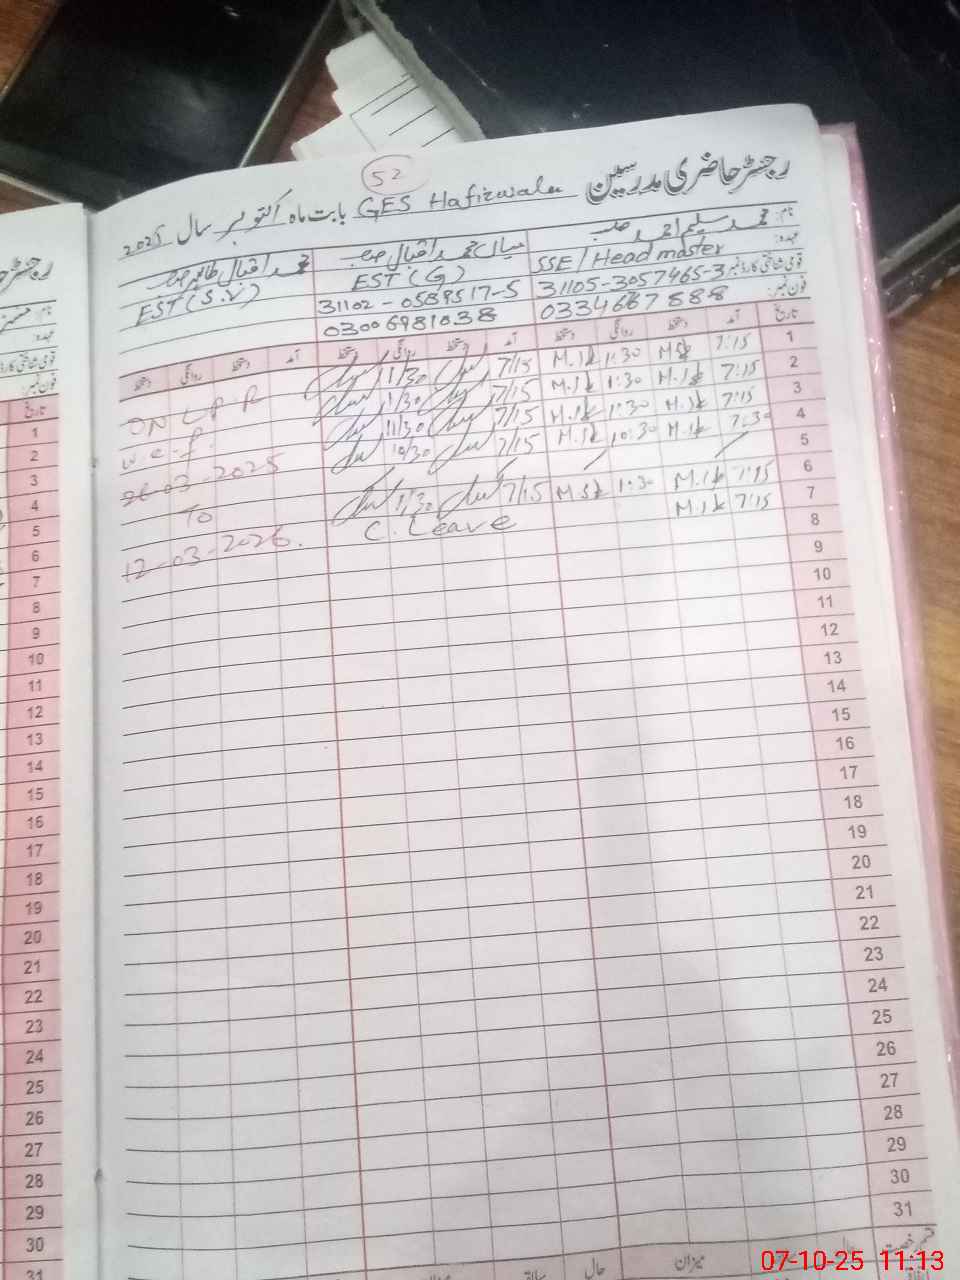 52
رجسٹر حاضری مدرسین GES Hafizwala بابت ماہ اکتوبر سال 2025
نام: محمد سلیم احمد صاحب
میاں محمد اقبال صاحب
محمد اقبال طاہر صاحب
عہدہ: SSE/Headmaster
EST (G)
EST (S.V)
قومی شناختی کارڈ نمبر 31105-3057465-3
31102-0589517-5
فون نمبر: 0334667888
03006981038
تاریخ آمد دستخط روانگی دستخط آمد دستخط روانگی دستخط آمد دستخط روانگی دستخط
1 7:15 1:30 7/15 1/30
2 7:15 M.Sk 1:30 M.Sk 7/15 1/30
3 7:15 M.Sk 1:30 M.Sk 7/15 11/30
4 7:30 M.Sk 10:30 M.Sk 7/15 10/30
5
6 7:15 M.Sk 1:30 M.Sk 7/15 1/30
7 7:15 M.Sk C. Leave
ON LPR
w.e.f
03-2025
To
12-03-2026.
8
9
10
11
12
13
14
15
16
17
18
19
20
21
22
23
24
25
26
27
28
29
30
31
میزان حال سابقہ
تاریخ
1
2
3
4
5
6
7
8
9
10
11
12
13
14
15
16
17
18
19
20
21
22
23
24
25
26
27
28
29
30
31
07-10-25 11:13